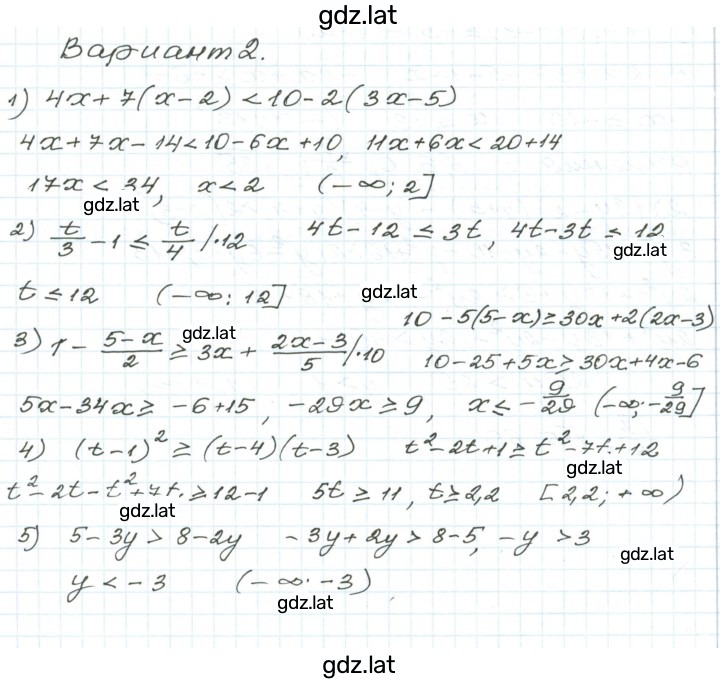 gdz.lat
Вариант 2.
1) 4x + 7(x - 2) < 10 - 2(3x - 5)
4x + 7x - 14 < 10 - 6x + 10, 11x + 6x < 20 + 14
17x < 34, x < 2 (-∞; 2]
gdz.lat
2) t/3 - 1 ≤ t/4 /·12 4t - 12 ≤ 3t, 4t - 3t ≤ 12
gdz.lat
t ≤ 12 (-∞; 12] gdz.lat
10 - 5(5 - x) ≥ 30x + 2(2x - 3)
3) 1 - (5 - x)/2 ≥ 3x + (2x - 3)/5 /·10 10 - 25 + 5x ≥ 30x + 4x - 6
gdz.lat
5x - 34x ≥ -6 + 15, -29x ≥ 9, x ≤ -9/29 (-∞; -9/29]
4) (t - 1)² ≥ (t - 4)(t - 3) t² - 2t + 1 ≥ t² - 7t + 12
gdz.lat
t² - 2t - t² + 7t ≥ 12 - 1 5t ≥ 11, t ≥ 2,2 [2,2; +∞)
gdz.lat
5) 5 - 3y > 8 - 2y -3y + 2y > 8 - 5, -y > 3
gdz.lat
y < -3 (-∞; -3)
gdz.lat
gdz.lat